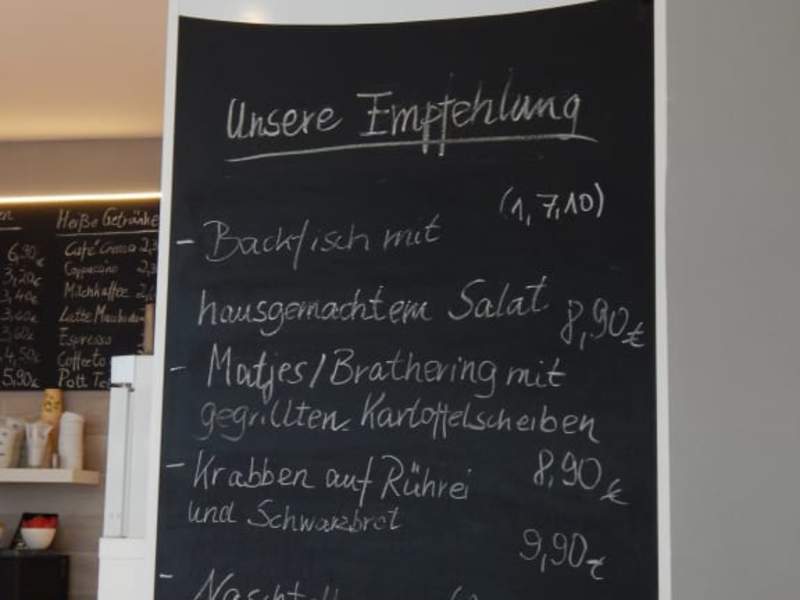 Unsere Empfehlung
(1, 7, 10)
- Backfisch mit
hausgemachtem Salat 8,90€
- Matjes/Brathering mit
gegrillten Kartoffelscheiben
8,90€
- Krabben auf Rührei
und Schwarzbrot
9,90€
Heiße Getränke
Café Crema
Cappuccino
Milchkaffee
Espresso
6,90
3,20€
3,40€
3,60€
3,60€
4,50€
5,90€